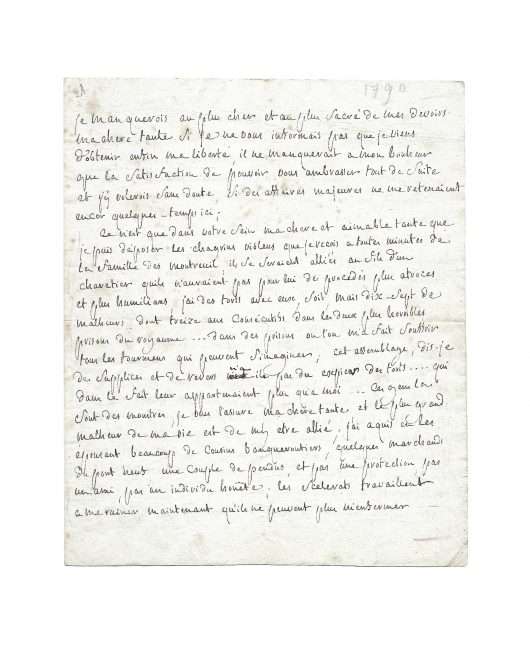 1790
je manquerois au plus cher et au plus sacré de mes devoirs
ma chere tante si je ne vous informois pas que je viens
d'obtenir enfin ma liberté il ne manqueroit a mon bonheur
que la satisfaction de pouvoir vous embrasser tout de suite
et j'y volerois sans doute si des affaires majeures ne me retenaient
encor quelques temps ici;
Ce n'est que dans votre sein ma chere et aimable tante que
je puis déposer les chagrins violens que je recois a toutes minutes de
la famille des montreuil ils se seraient alliés au fils d'un
charetier qu'ils n'auraient pas pour lui de procedés plus atroces
et plus humilians j'ai des torts avec eux, soit mais dix sept de
malheurs, dont treize ans consécutifs dans les deux plus horribles
prisons du royaume ... dans des prisons ou l'on m'a fait souffrir
tous les tourmens qui peuvent s'imaginer, cet assemblage, dis-je
des supplices et de revers pas du des torts .... qui
dans le fait leur appartenaient plus qu'a moi ... Ces gens la
sont des monstres, je vous l'assure ma chere tante et le plus grand
malheur de ma vie est de m'y etre allié, j'ai aquis en les
epousant beaucoup de cousins banqueroutiers, quelques marchands
du pont neuf une couple de pendus, et pas une protection pas
un ami, pas un individu honete, les scelerats travaillent
a me ruiner maintenant qu'ils ne peuvent plus m'enfermer